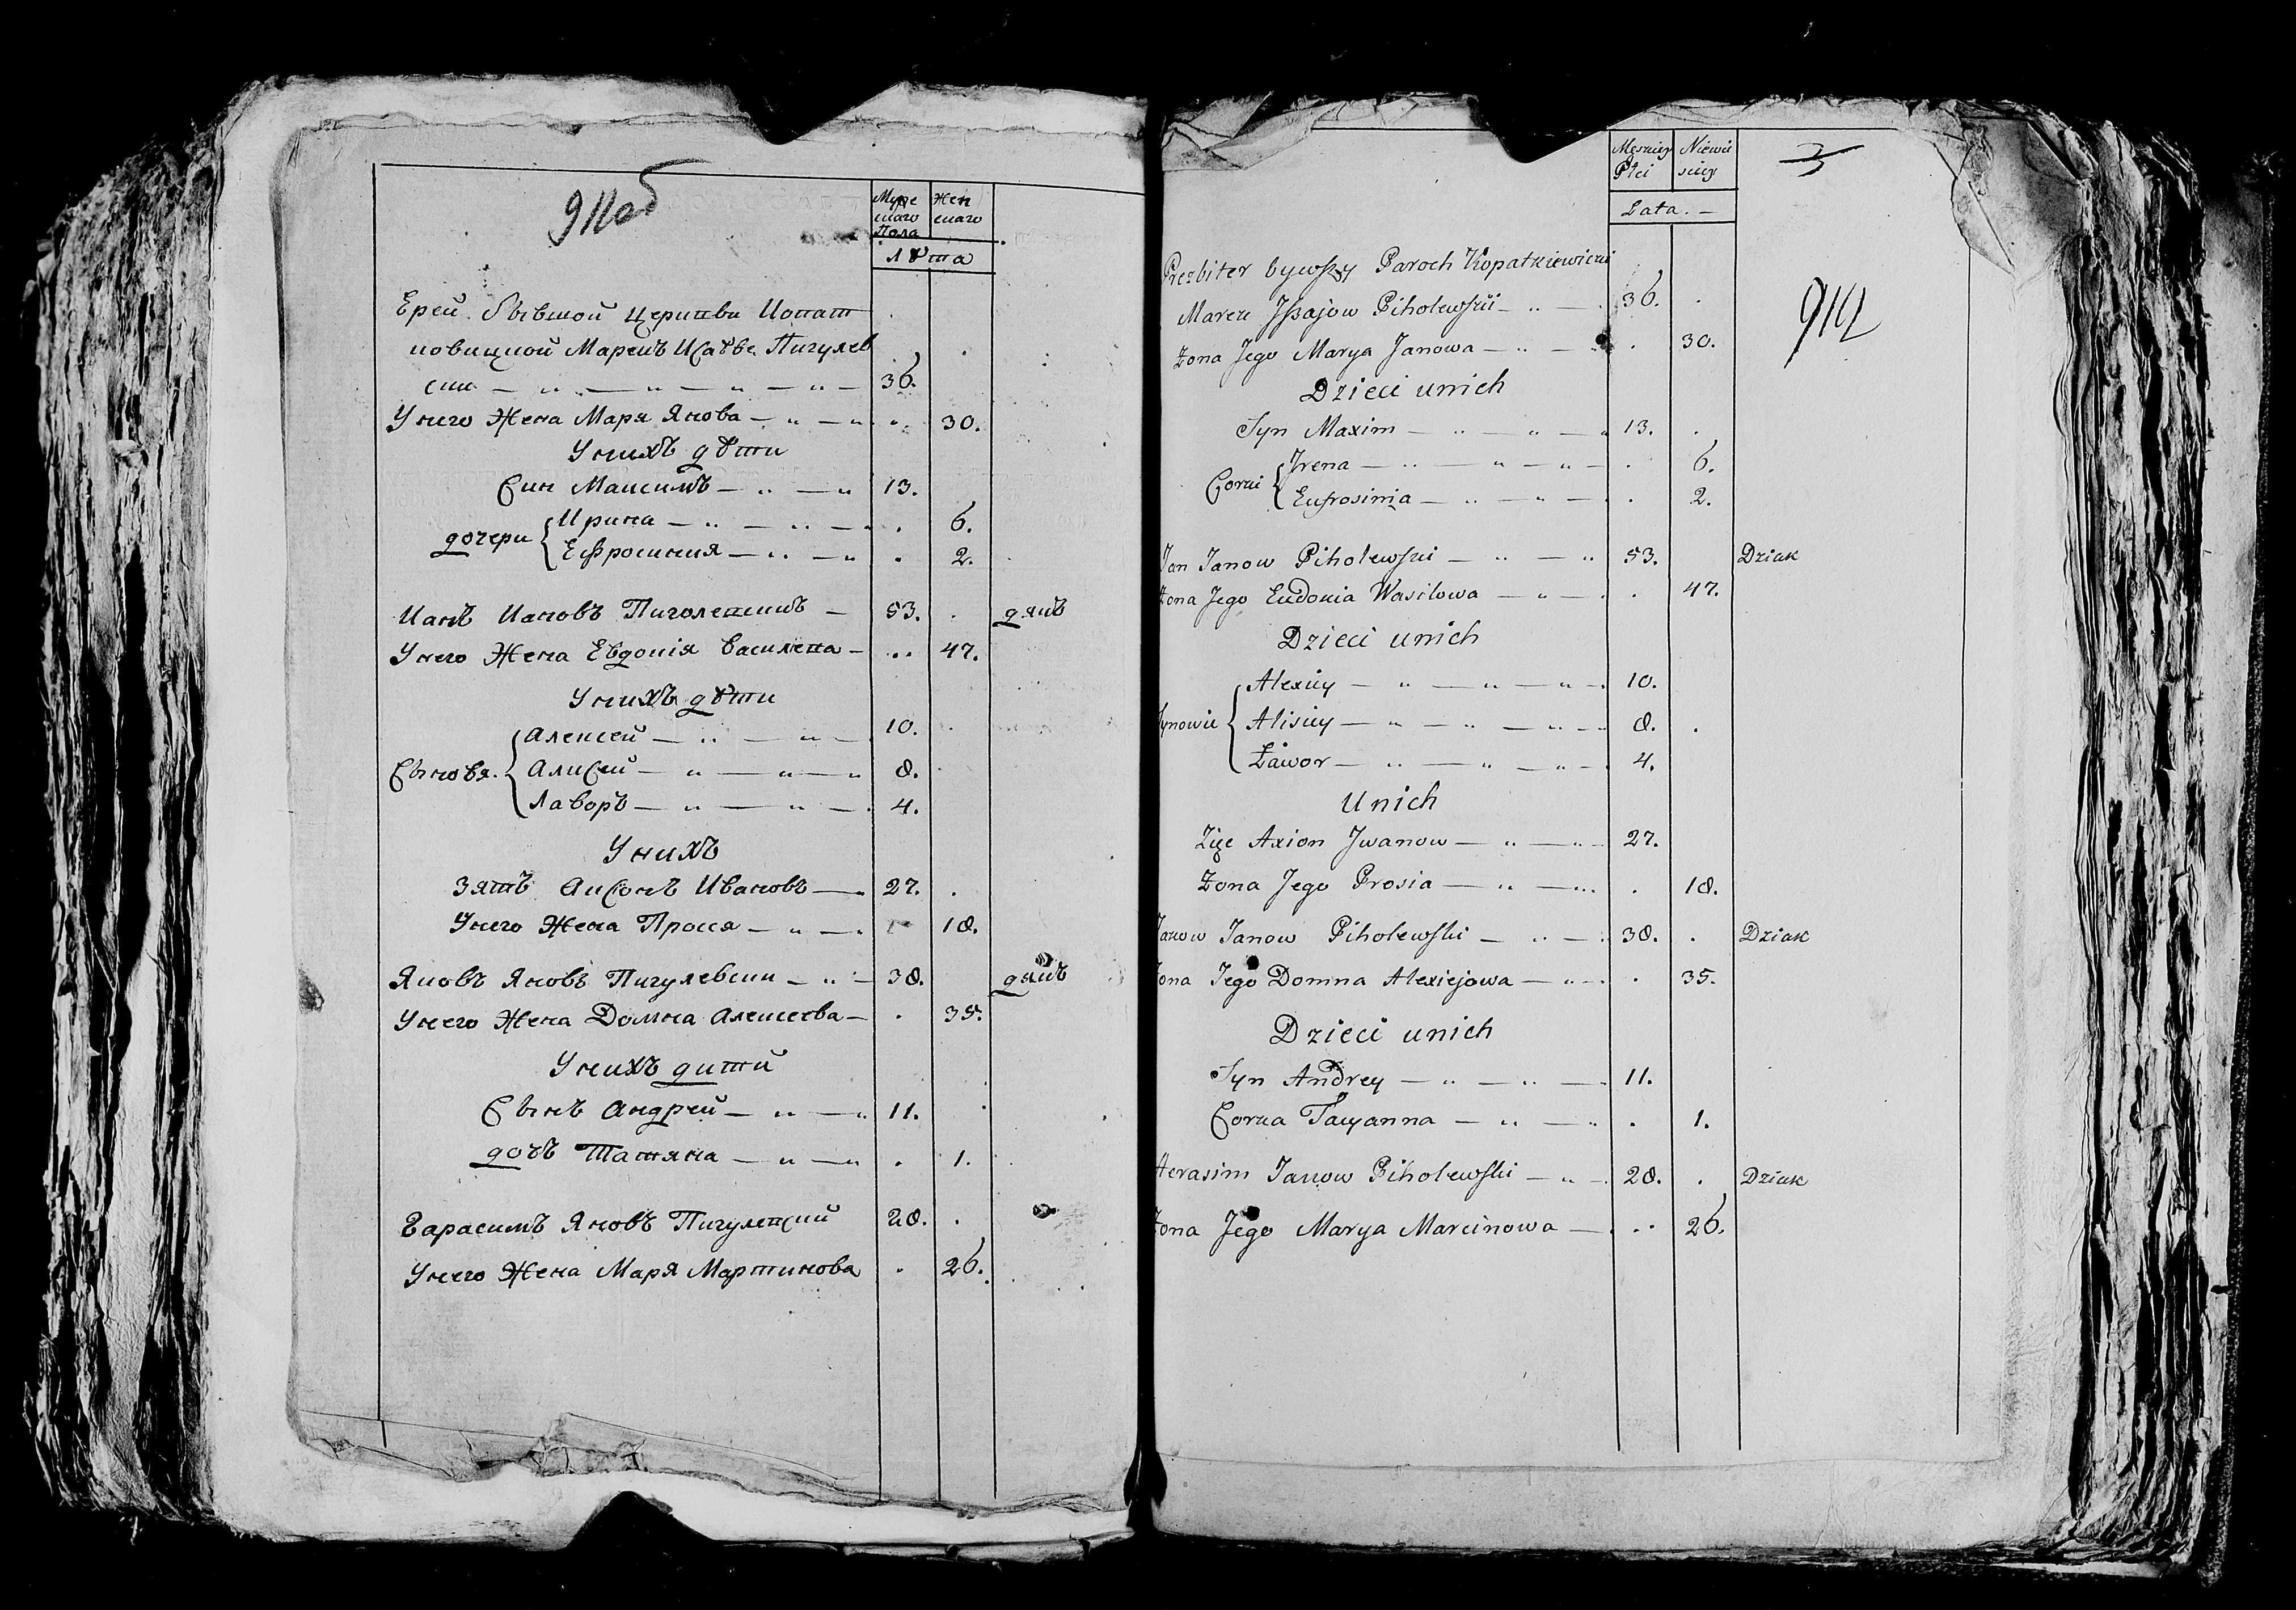 911об
Муже
скаго
Пола
Жен
скаго
Лѣта
Ерей бывшой Церкъви Копатъ
ковицкой Марекъ Исаѣвъ Пигулев
ски 36.
Унего Жена Маря Янова 30.
Унихъ дѣти
Син Максимъ 13.
дочери Ирина 6.
Ефросиния 2.
Ианъ Иановъ Пиголевский 53. дякъ
Унего Жена Евдокія Василева 47.
Унихъ дѣти
Сыновя. Алексей 10.
Алисей 8.
Лаворъ 4.
Унихъ
Зять Аксонъ Ивановъ 27.
Унего Жена Прося 18.
Яковъ Яновъ Пигулевски 38. дякъ
Унего Жена Домна Алексеева 35.
Унихъ дити
Сынъ Андрей 11.
дочъ Татяна 1.
Гарасимъ Яновъ Пигулевский 28.
Унего Жена Маря Мартинова 26.
Męskiey
Płci
Niewie
skiey
Lata.
912
Prezbiter bywszy Paroch Kopatkiewicki
Marek Jssajow Piholewski 36.
Żona Jego Marya Janowa 30.
Dzieci unich
Syn Maxim 13.
Corki Jrena 6.
Eufrosinia 2.
Jan Janow Piholewski 53. Dziak
Żona Jego Eudokia Wasilowa 47.
Dzieci unich
Synowie Alexiey 10.
Alisiey 8.
Ławor 4.
Unich
Zięc Axion Jwanow 27.
Żona Jego Prosia 18.
Jakow Janow Piholewski 38. Dziak
Żona Jego Domna Alexiejowa 35.
Dzieci unich
Syn Andrey 11.
Corka Tacyanna 1.
Herasim Janow Piholewski 28. Dziak
Żona Jego Marya Marcinowa 26.